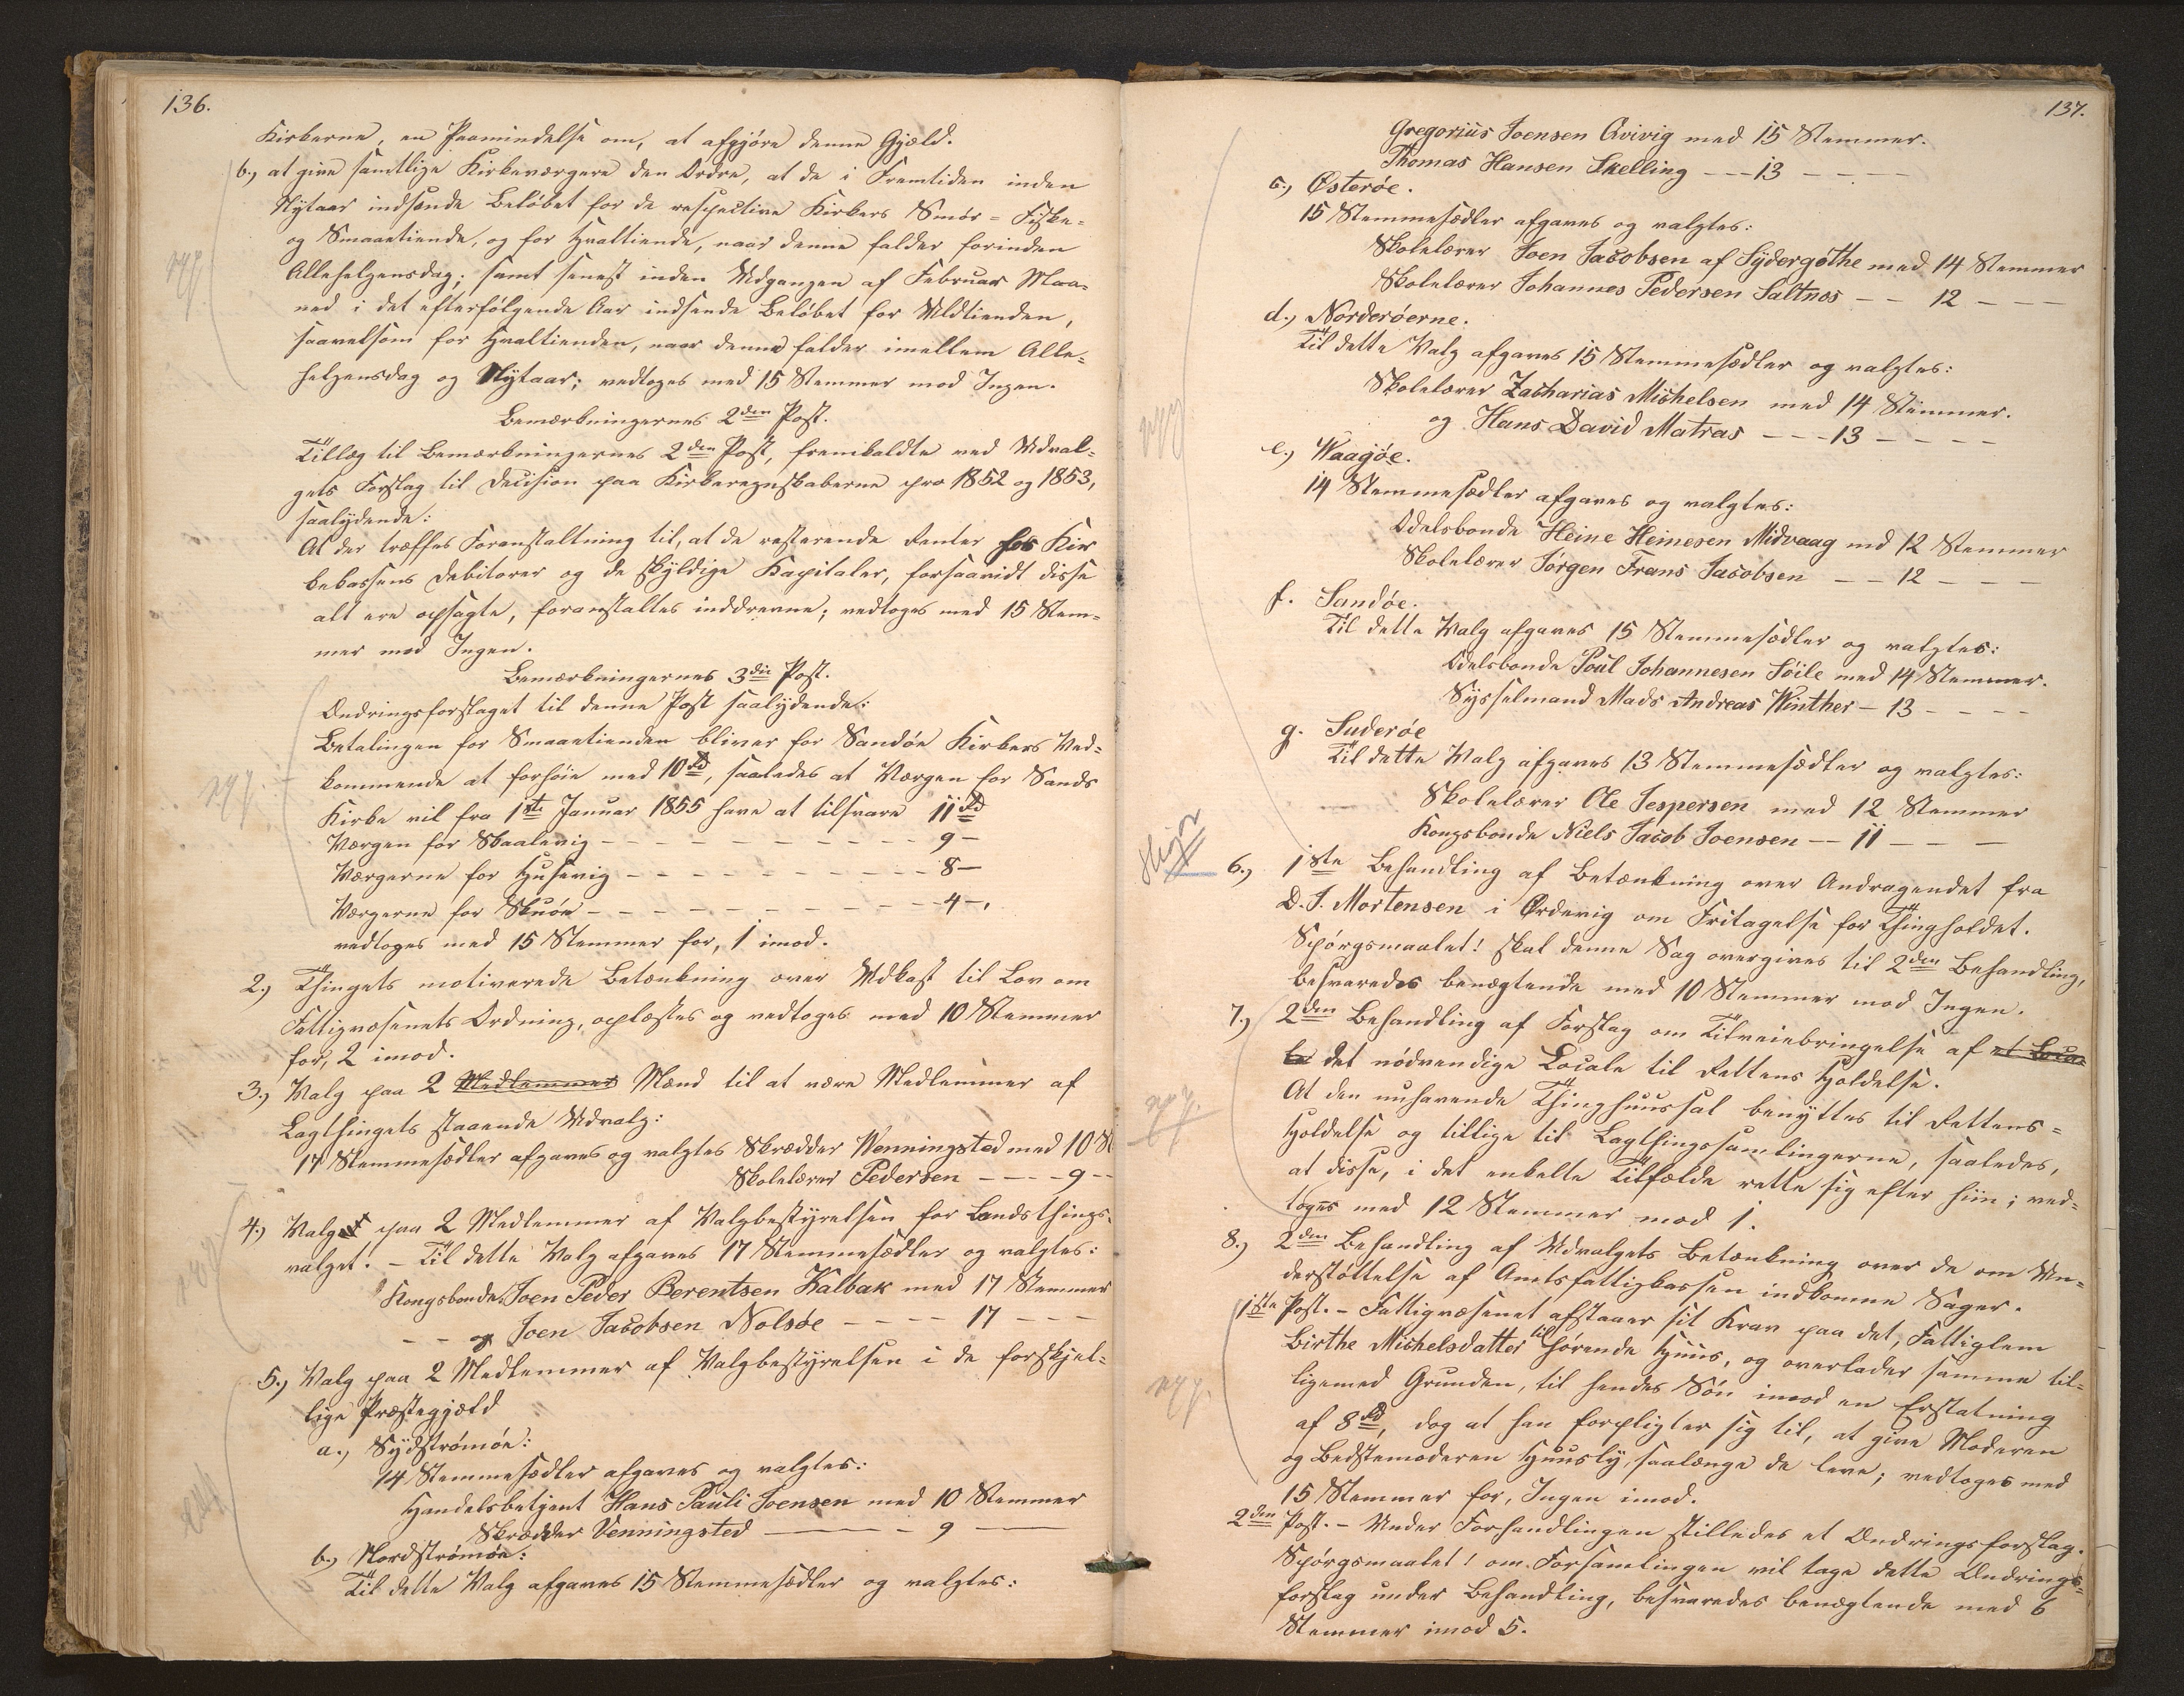 136.
Kirkerne, en Paamindelse om, at afgjøre denne Gjæld.
b.) at give samtlige Kirkeværgere den Ordre, at de i Fremtiden inden
Nytaar indsende Beløbet for de respective Kirkers Smør- Fiske-
og Smaatiende, og for Hvaltiende, naar denne falder forinden
Allehelgensdag; samt senest inden Udgangen af Februar Maa-
ned i det efterfølgende Aar indsende Beløbet for Uldtienden,
saavelsom for Hvaltienden, naar denne falder imellem Alle-
helgensdag og Nytaar; vedtoges med 15 Stemmer mod Ingen.
Bemærkningernes 2den Post.
Tillæg til Bemærkningernes 2den Post, fremkaldte ved Udval-
gets Forslag til Decision paa Kirkeregnskaberne pro 1852 og 1853,
saalydende:
At der træffes Foranstaltning til, at de resterende Renter hos Kir
kekassens Debitorer og de skyldige Kapitaler, forsaavidt disse
alt ere opsagte, foranstaltes inddrevne; vedtoges med 15 Stem-
mer mod Ingen.
Bemærkningernes 3die Post.
Ændringsforslaget til denne Post saalydende:
Betalingen for Smaatienden bliver for Sandøe Kirkers Ved-
kommende at forhøie med 10 Rd, saaledes at Værgen for Sands
Kirke vil fra 1ste Januar 1855 have at tilsvare 11 Rd
Værgen for Skaalevig - - - - - - - - - - 9 -
Værgerne for Husevig - - - - - - - - - - 8 -
Værgerne for Skuøe - - - - - - - - - - - 4 -,
vedtoges med 15 Stemmer for, 1 imod.
2.) Thingets motiverede Betænkning over Udkast til Lov om
Fattigvæsenets Ordning, oplæstes og vedtoges med 10 Stemmer
for, 2 imod.
3.) Valg paa 2 Medlemmer Mænd til at være Medlemmer af
Lagthingets staaende Udvalg:
14 Stemmesedler afgaves og valgtes Skrædder Wenningsted med 10 St
Skolelærer Pedersen - - - - 9 - -
4.) Valget paa 2 Medlemmer af Valgbestyrelsen for Landsthings-
valget. - Til dette Valg afgaves 17 Stemmesedler og valgtes:
Kongsbonde Joen Peder Berentsen Kalbak med 17 Stemmer
- - og Joen Jacobsen Nolsøe - - - - 17 - - -
5.) Valg paa 2 Medlemmer af Valgbestyrelsen i de forskjel-
lige Præstegjæld
a.) Sydstrømøe:
14 Stemmesedler afgaves og valgtes:
Handelsbetjent Hans Pauli Joensen med 10 Stemmer
Skrædder Venningsted - - - 9 - -
b.) Nordstrømøe:
Til dette Valg afgaves 15 Stemmesedler og valgtes:
137.
Gregorius Joensen Qvivig med 15 Stemmer.
Thomas Hansen Skelling - - - 13 - - - -
c.) Østerøe.
15 Stemmesedler afgaves og valgtes:
Skolelærer Joen Jacobsen af Sydergøthe med 14 Stemmer
Skolelærer Johannes Pedersen Saltnes - - 12 - - -
d.) Norderøerne.
Til dette Valg afgaves 15 Stemmesedler og valgtes:
Skolelærer Zacharias Michelsen med 14 Stemmer.
og Hans David Matras - - - 13 - - - -
e.) Waagøe.
14 Stemmesedler afgaves og valgtes:
Odelsbonde Heine Heinesen Midvaag md 12 Stemmer
Skolelærer Jørgen Frans Jacobsen - - 12 - - -
f. Sandøe.
Til dette Valg afgaves 15 Stemmesedler og valgtes:
Odelsbonde Poul Johannesen Søile med 14 Stemmer.
Sysselmand Mads Andreas Winther - 13 - - - -
g. Suderøe
Til dette Valg afgaves 13 Stemmesedler og valgtes:
Skolelærer Ole Jespersen med 12 Stemmer
Kongsbonde Niels Jacob Joensen - - 11 - - -
6.) 1ste Behandling af Betænkning over Andragendet fra
D. J. Mortensen i Ørdevig om Fritagelse for Thingholdet.
Spørgsmaalet! skal denne Sag overgives til 2den Behandling,
besvaredes benægtende med 10 Stemmer mod Ingen.
7.) 2den Behandling af Forslag om Tilveiebringelse af et Loca
le det nødvendige Locale til Rettens Holdelse.
At den nuhavende Thinghuussal benyttes til Rettens-
Holdelse og tillige til Lagthingssamlingerne, saaledes,
at disse, i det enkelte Tilfælde rette sig efter hiin; ved-
toges med 12 Stemmer mod 1.
8.) 2den Behandling af Udvalgets Betænkning over de om Un-
derstøttelse af Amtsfattigkassen indkomne Sager.
1ste Post. - Fattigvæsenet afstaaer sit Krav paa det, Fattiglem
Birthe Michelsdatter tilhørende Huus, og overlader samme til-
ligemed Grunden, til hendes Søn imod en Erstatning
af 8 Rd, dog at han forpligter sig til, at give Moderen
og Bedstemoderen Huusly, saalænge de leve; vedtoges med
15 Stemmer for, Ingen imod.
2den Post. - Under Forhandlingen stilledes et Ændringsforslag.
Spørgsmaalet! om Forsamlingen vil tage dette Ændrings-
forslag under Behandling, besvaredes benægtende med 6
Stemmer imod 5.